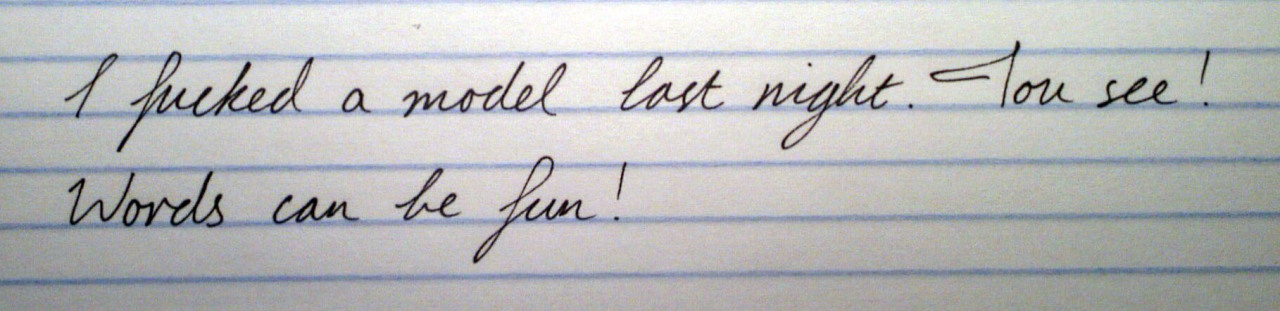 I fucked a model last night. You see!
Words can be fun!